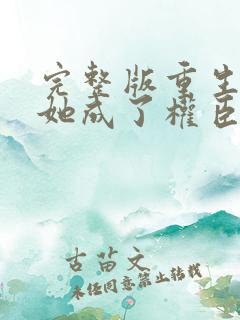 完整版重生
她成了权臣
古苗文
未经同意禁止转载